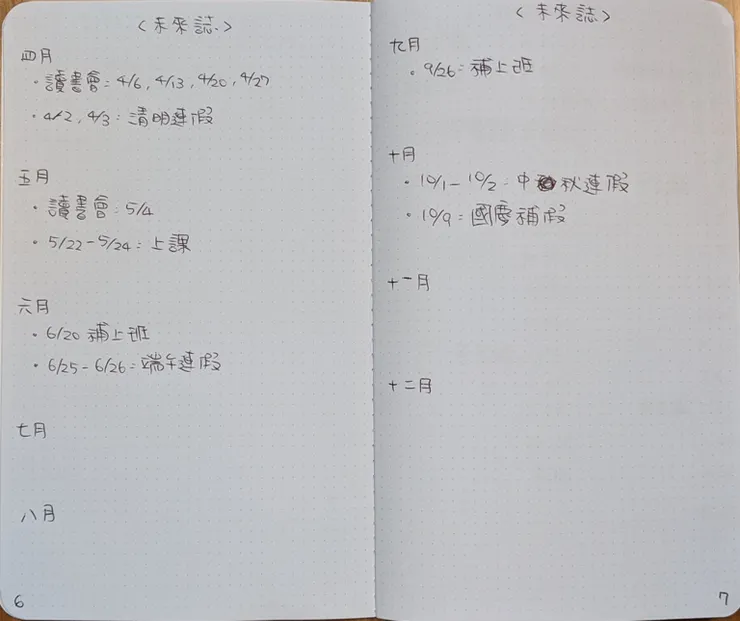 <未來誌>
四月
・讀書會：4/6, 4/13, 4/20, 4/27
・4/2, 4/3：清明連假
五月
・讀書會：5/4
・5/22-5/24：上課
六月
・6/20 補上班
・6/25-6/26：端午連假
七月
八月
6
<未來誌>
九月
・9/26：補上班
十月
・10/1-10/2：中秋連假
・10/9：國慶補假
十一月
十二月
7